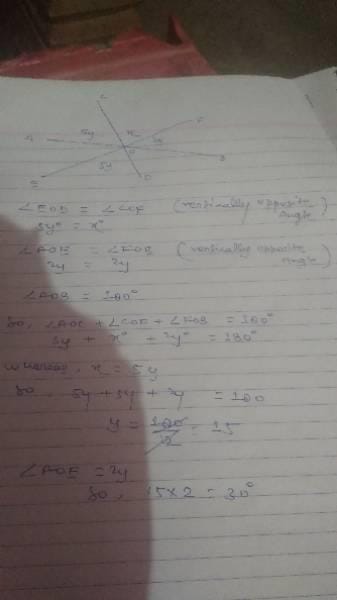 C
A 5y x F
O 2y
B
5y
E D
∠EOD = ∠COF (vertically opposite Angle)
5y° = x°
∠AOE = ∠FOB (vertically opposite Angle)
2y = 2y
∠AOB = 180°
So, ∠AOC + ∠COF + ∠FOB = 180°
5y + x° + 2y° = 180°
whereas, x = 5y
So, 5y + 5y + 2y = 180
y = 180/12 = 15
∠AOE = 2y
So, 15×2 = 30°